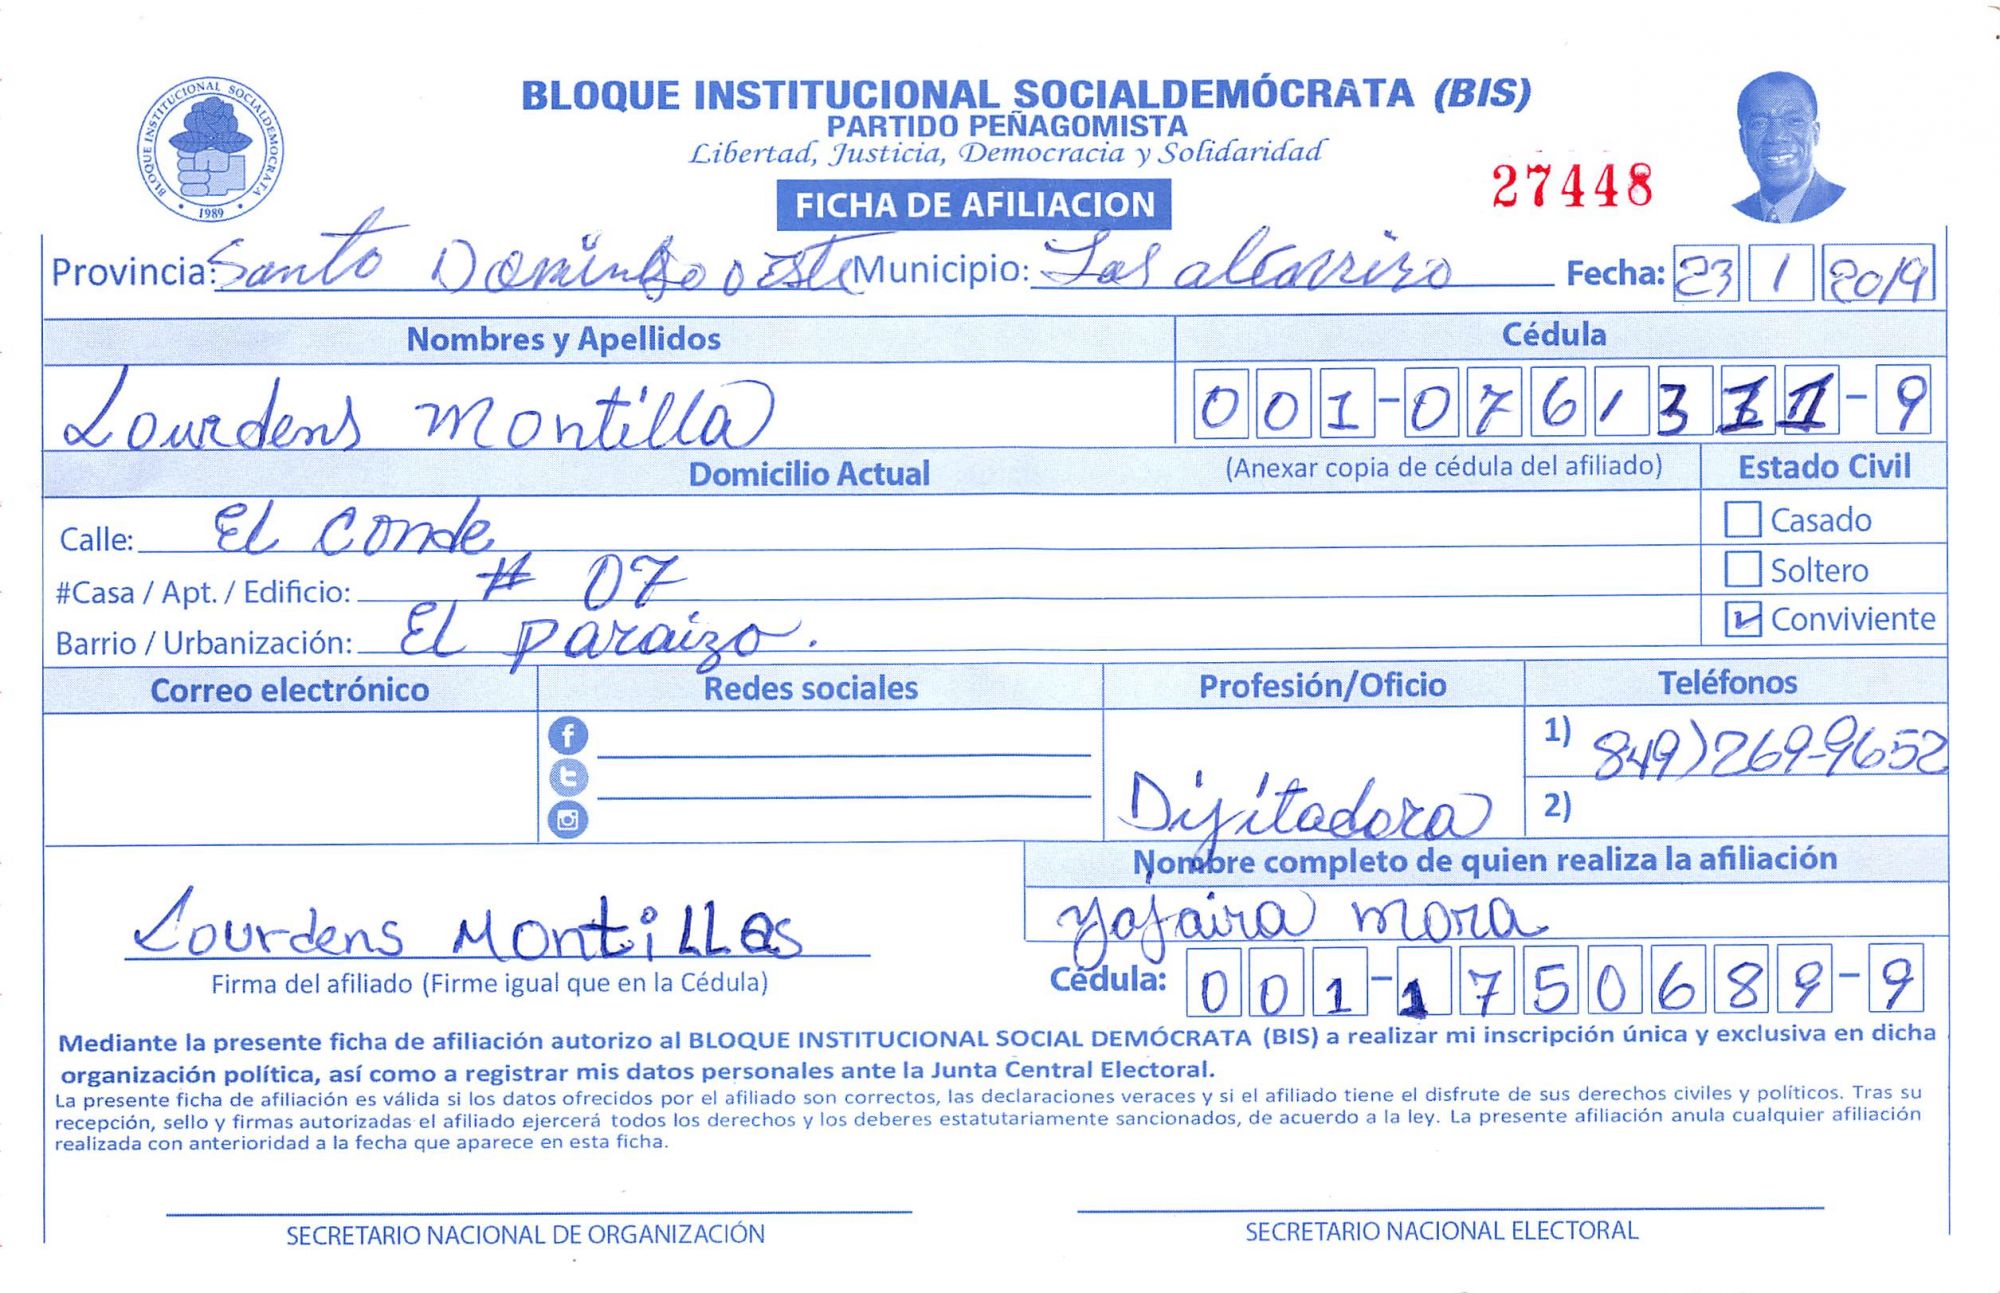 BLOQUE INSTITUCIONAL SOCIALDEMOCRATA
1989
BLOQUE INSTITUCIONAL SOCIALDEMÓCRATA (BIS)
PARTIDO PEÑAGOMISTA
Libertad, Justicia, Democracia y Solidaridad
27448
FICHA DE AFILIACION
Provincia: Santo Domingo oeste Municipio: Los alcarrizo Fecha: 23 1 2019
Nombres y Apellidos Cédula
Lourdens Montilla 001-0761311-9
Domicilio Actual (Anexar copia de cédula del afiliado) Estado Civil
Calle: El Conde Casado
#Casa / Apt. / Edificio: # 07 Soltero
Barrio / Urbanización: El paraizo. Conviviente
Correo electrónico Redes sociales Profesión/Oficio Teléfonos
1) 849)269-9652
Dijitadora 2)
Nombre completo de quien realiza la afiliación
Lourdens MontiLLas yajaira mora
Firma del afiliado (Firme igual que en la Cédula) Cédula: 001-1750689-9
Mediante la presente ficha de afiliación autorizo al BLOQUE INSTITUCIONAL SOCIAL DEMÓCRATA (BIS) a realizar mi inscripción única y exclusiva en dicha
organización política, así como a registrar mis datos personales ante la Junta Central Electoral.
La presente ficha de afiliación es válida si los datos ofrecidos por el afiliado son correctos, las declaraciones veraces y si el afiliado tiene el disfrute de sus derechos civiles y políticos. Tras su
recepción, sello y firmas autorizadas el afiliado ejercerá todos los derechos y los deberes estatutariamente sancionados, de acuerdo a la ley. La presente afiliación anula cualquier afiliación
realizada con anterioridad a la fecha que aparece en esta ficha.
SECRETARIO NACIONAL DE ORGANIZACIÓN SECRETARIO NACIONAL ELECTORAL